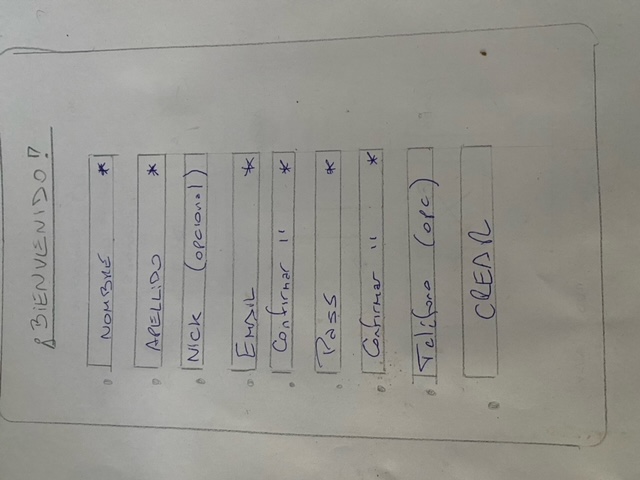 ¡BIENVENIDO!
NOMBRE *
APELLIDO *
NICK (opcional)
EMAIL *
Confirmar " *
Pass *
Confirmar " *
Teléfono (opc)
CREAR